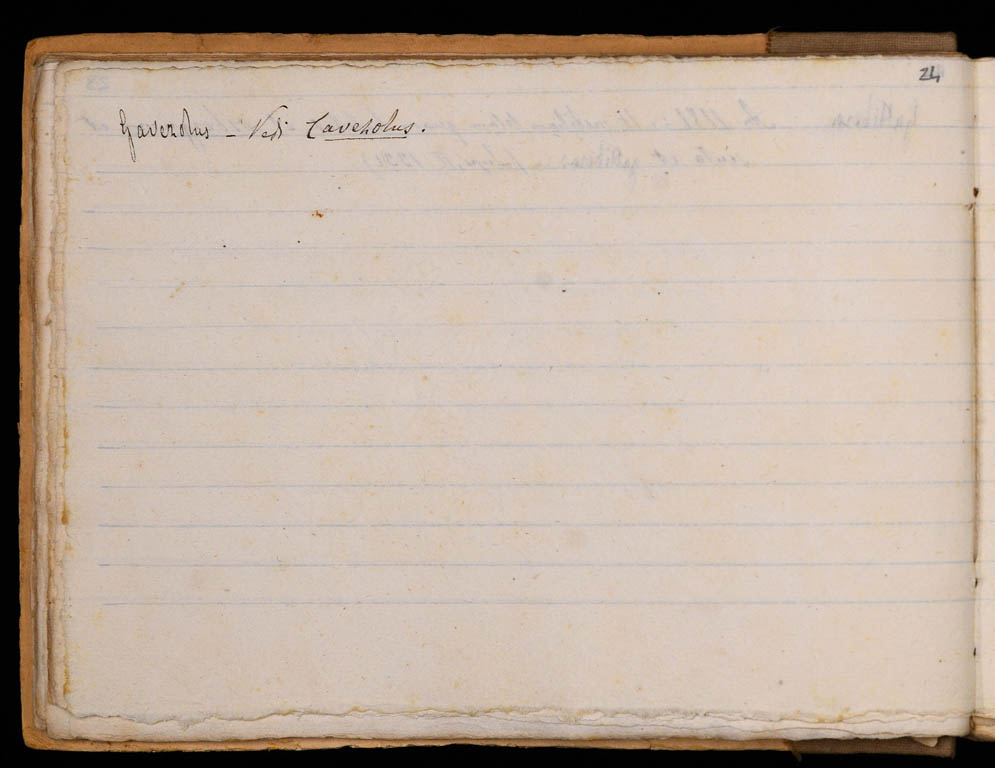 24
Gaverolus – Vedi Caverolus.